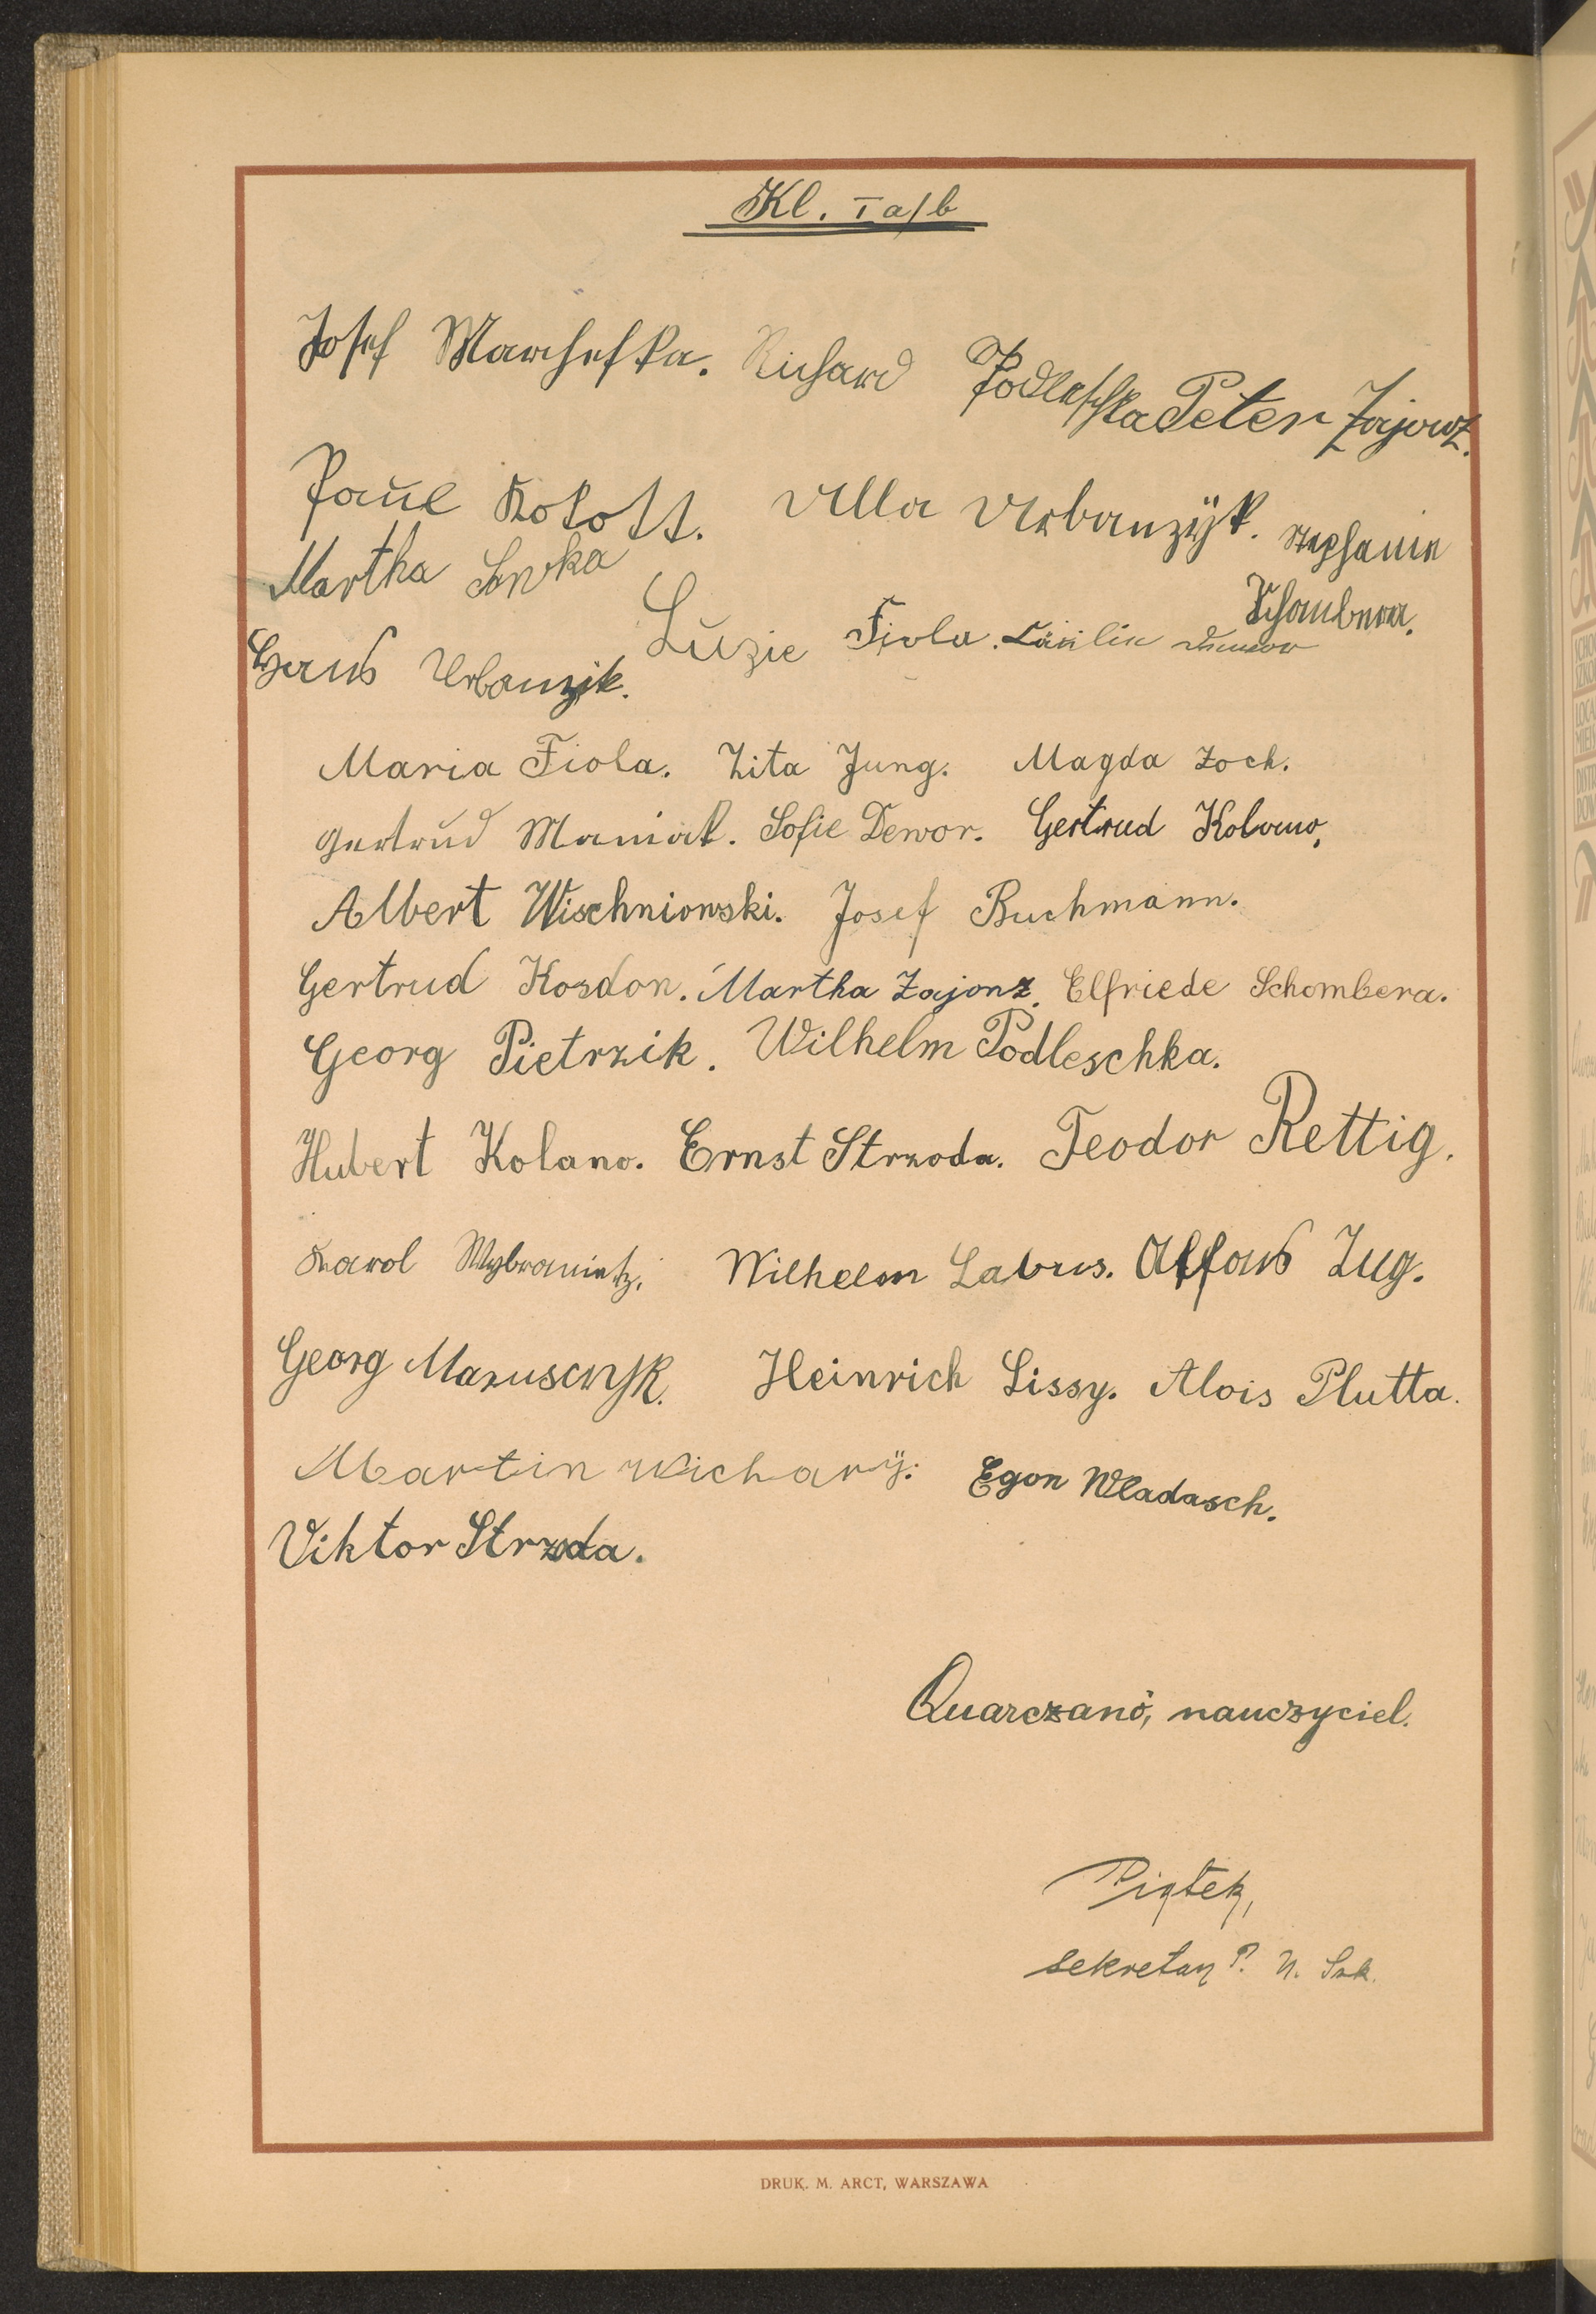 Kl. I a/b
Josef Marcheſka. Richard Podleſchka Peter Zajonz.
Paul Kokott. Ulla Urbanzÿk. Stephanie
Martha Sowka Schombera.
Luzie Fiola. Cäcilie
Hans Urbanzik.
Maria Fiola. Zita Jung. Magda Zoch.
Gertrud Maniak. Sofie Dewor. Gertrud Kolano,
Albert Wischniowski. Josef Buchmann.
Gertrud Kosdon. Martha Zajonz. Elfriede Schombera.
Georg Pietrzik. Wilhelm Podleschka.
Hubert Kolano. Ernst Strzoda. Teodor Rettig.
Karol Wybranietz. Wilhelm Labus. Alfons Zug.
Georg Marusczyk. Heinrich Lissy. Alois Plutta.
Martin Wicharÿ. Egon Wladasch.
Viktor Strzoda.
Quarczanó, nauczyciel.
Piątek,
sekretarz P. U. Szk.
DRUK. M. ARCT, WARSZAWA